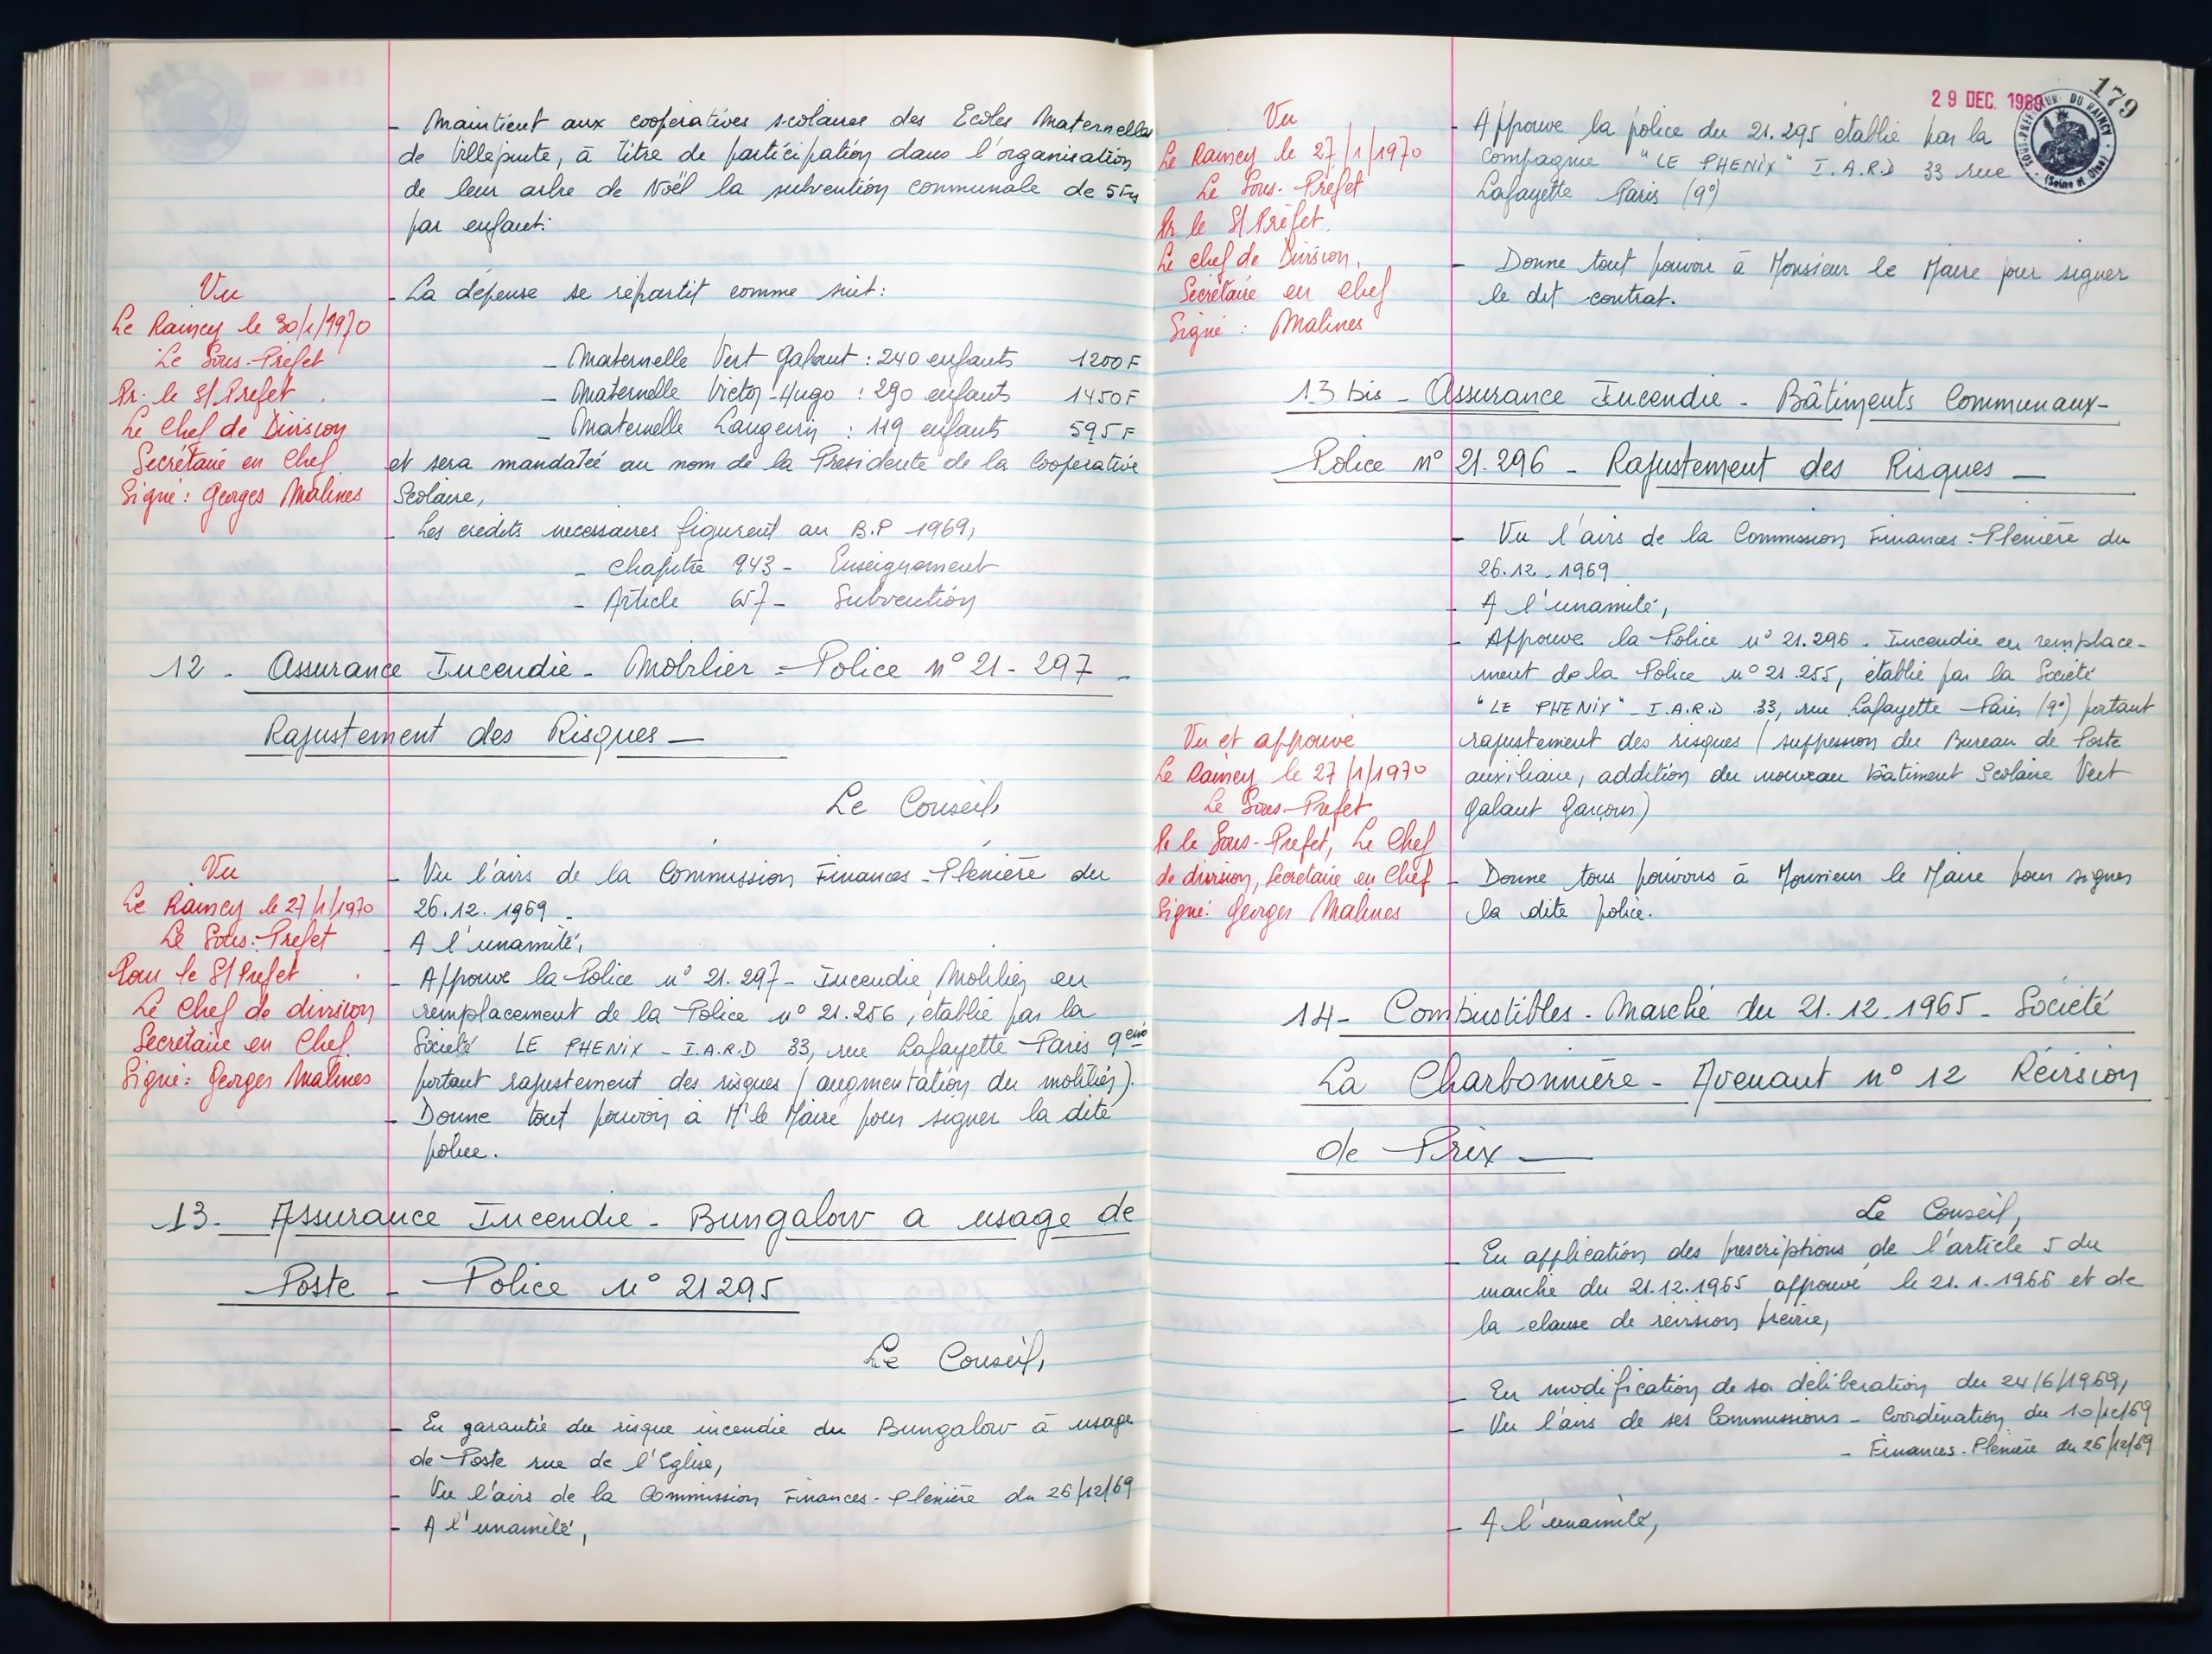 - Maintient aux coopératives scolaires des Ecoles Maternelles
de Villepinte, à titre de participation dans l'organisation
de leur arbre de Noël la subvention communale de 5Frs
par enfant:
Vu
Le Raincy le 30/1/1970
Le Sous-Préfet
Pr. le S/Préfet
Le Chef de Division
Secrétaire en Chef
Signé: Georges Malines
- La dépense se répartit comme suit:
- Maternelle Vert Galant : 240 enfants 1200 F
- Maternelle Victor-Hugo : 290 enfants 1450 F
- Maternelle Langevin : 119 enfants 595 F
et sera mandatée au nom de la Présidente de la Coopérative
Scolaire,
- Les crédits nécessaires figurent au B.P 1969,
- Chapitre 943 - Enseignement
- Article 657 - Subvention
12 - Assurance Incendie - Mobilier - Police n° 21-297 -
Rajustement des Risques -
Le Conseil,
Vu
Le Raincy le 27/1/1970
Le Sous-Préfet
Pour le S/Préfet
Le Chef de division
Secrétaire en Chef.
Signé: Georges Malines
- Vu l'avis de la Commission Finances-Plénière du
26.12.1969 -
- A l'unamité,
- Approuve la Police n° 21.297 - Incendie Mobilier en
remplacement de la Police n° 21.256, établie par la
Société LE PHENIX - I.A.R.D 33, rue Lafayette - Paris 9eme
portant rajustement des risques (augmentation du mobilier).
- Donne tout pouvoir à Mr le Maire pour signer la dite
police.
13. Assurance Incendie - Bungalow a usage de
Poste - Police n° 21295
Le Conseil,
- En garantie du risque incendie du Bungalow à usage
de Poste rue de l'Eglise,
- Vu l'avis de la Commission Finances-Plénière du 26/12/69
- A l'unamité,
179
29 DEC. 1969
SOUS-PREFECTURE DU RAINCY
(Seine et Oise)
Vu
Le Raincy le 27/1/1970
Le Sous-Préfet
Pr le S/Préfet.
Le chef de Division,
Secrétaire en chef
Signé : Malines
- Approuve la police du 21.295 établie par la
Compagnie "LE PHENIX" I.A.R.D 33 rue
Lafayette Paris (9°)
- Donne tout pouvoir à Monsieur le Maire pour signer
le dit contrat.
13 bis - Assurance Incendie - Bâtiments Communaux -
Police n° 21.296 - Rajustement des Risques -
- Vu l'avis de la Commission Finances-Plénière du
26.12.1969
- A l'unamité,
- Approuve la Police n° 21.296 - Incendie en remplace-
ment de la Police n° 21.255, établie par la Société
"LE PHENIX" - I.A.R.D 33, rue Lafayette - Paris (9°) portant
rajustement des risques (suppession du Bureau de Poste
auxiliaire, addition du nouveau bâtiment Scolaire Vert
Galant Garçons)
Vu et approuvé
Le Raincy le 27/1/1970
Le Sous-Préfet
Pr le Sous-Préfet, Le Chef
de division, Secrétaire en Chef
Signé: Georges Malines
- Donne tous pouvoirs à Monsieur le Maire pour signer
la dite police.
14 - Combustibles - Marché du 21.12.1965 - Société
La Charbonnière - Avenant n° 12 Révision
de Prix -
Le Conseil,
- En application des prescriptions de l'article 5 du
marché du 21.12.1965 approuvé le 21.1.1966 et de
la clause de révision prévue,
- En modification de sa délibération du 24/6/1969,
- Vu l'avis de ses Commissions - Coordination du 10/12/69
- Finances-Plénière du 26/12/69
- A l'unamité,